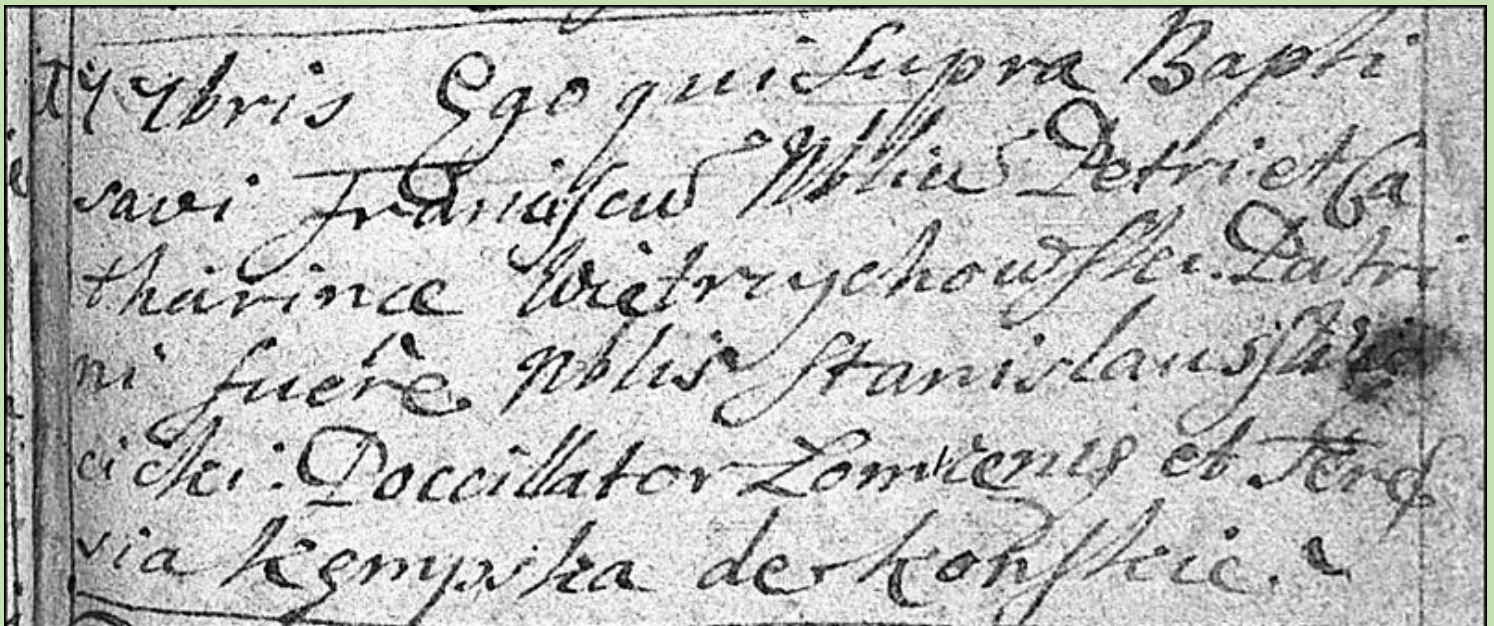 7bris Ego qui Supra Bapti
savi Franciscū Nbliū Petri et Ca
tharinæ Wietrzychowski. Patri
ni fuerê Nblis Stanislaus
cicki. Poccillator et Tere
sia Kęmpska de Konskie.